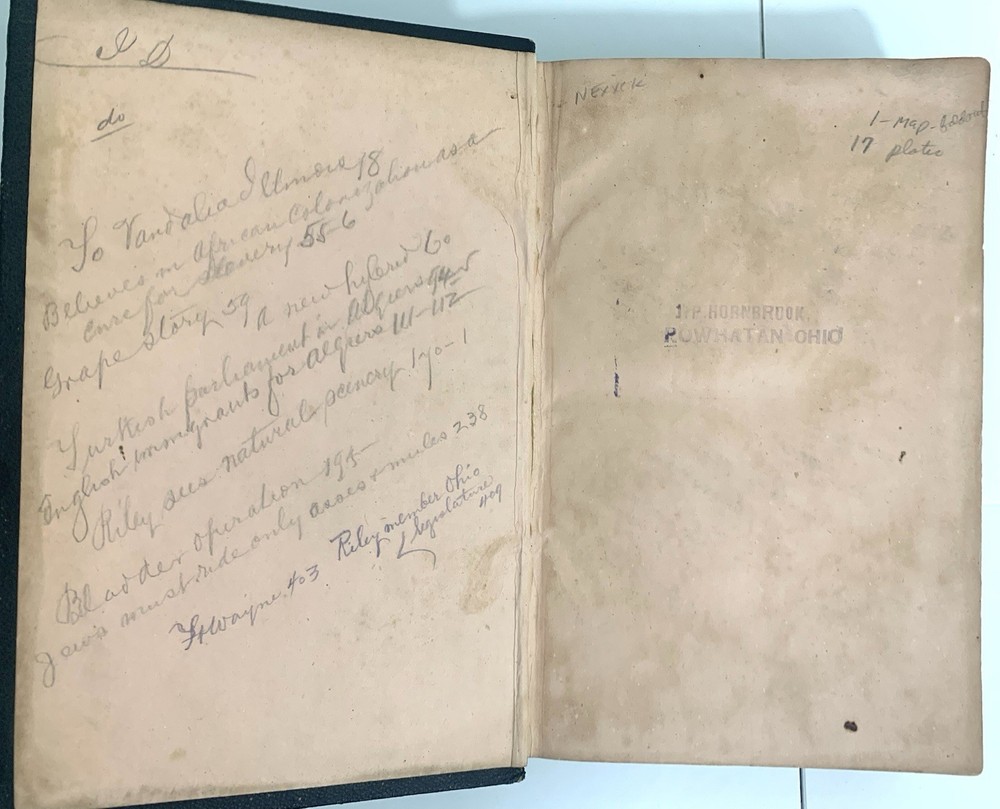 do
To Vandalia Illinois 18
Believes in African Colonization as a
cure for Slavery 55-6
Grape Story 59 A new hybrid 60
Turkish parliament in Algiers 94-5
English immigrants for Algiers 111-112
Riley sees natural scenery 170-1
Bladder operation 195
Jews must ride only asses & mules 238
Riley member Ohio
Legislature
409
Ft Wayne 403
1-Map-
17 plates
HORNBROOK,
POWHATAN OHIO